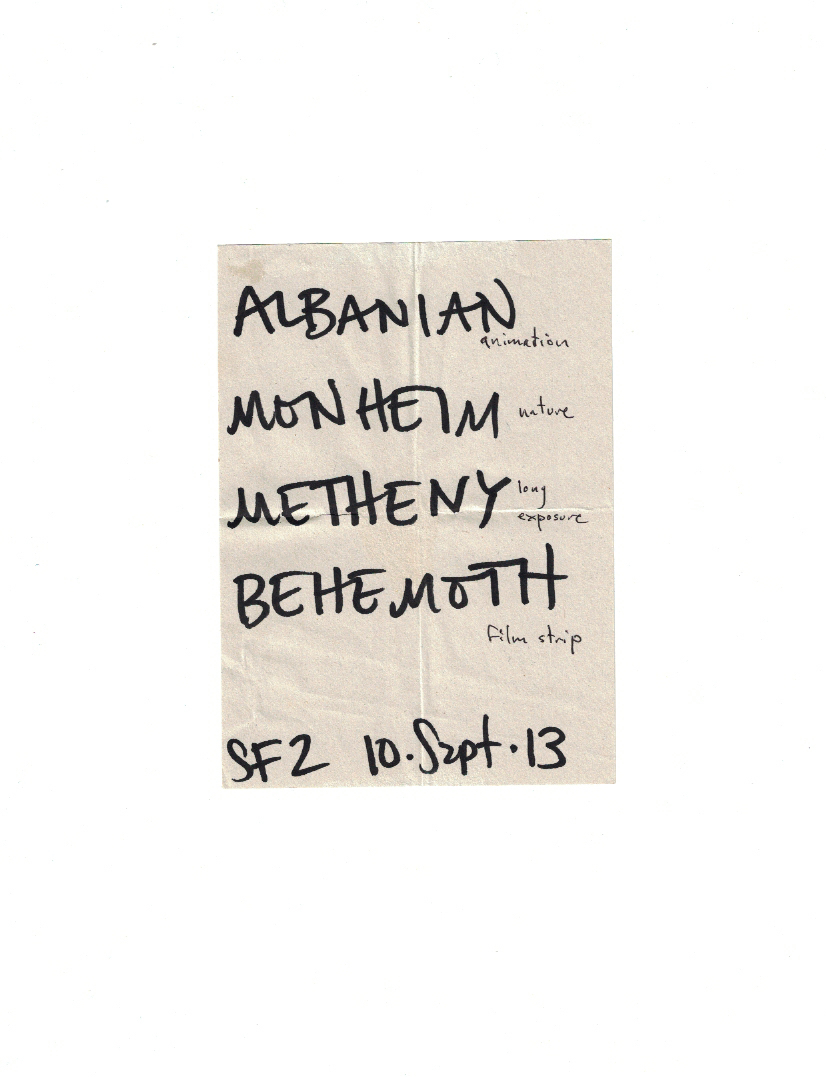 ALBANIAN
animation
MONHEIM nature
METHENY long
exposure
BEHEMOTH
film strip
SF2 10.Sept.13